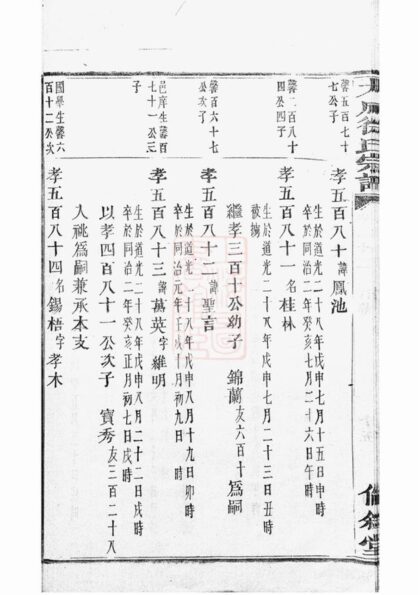 徐氏宗譜
倫敘堂
馨五百七十
七公子
孝五百八十諱鳳池
生於道光二十八年戊申七月十五日申時
卒於同治二年癸亥七月二十六日午時
馨二百八十
四公四子
孝五百八十一名桂林
生於道光二十八年戊申七月二十三日丑時
被擄
繼孝三百十公幼子 錦蘭友六百十爲嗣
馨百六十七
公次子
孝五百八十二諱聖言
生於道光二十八年戊申八月十九日卯時
卒於同治元年壬戌十月初九日 時
邑庠生馨百
七十一公三
子
孝五百八十三諱萬英字維明
生於道光二十八年戊申八月二十二日戌時
卒於同治二年癸亥正月初七日戌時
以孝四百八十一公次子 寶秀友三百二十八
入祧爲嗣兼承本支
國學生馨六
百十二公次
孝五百八十四名錫梧字孝木